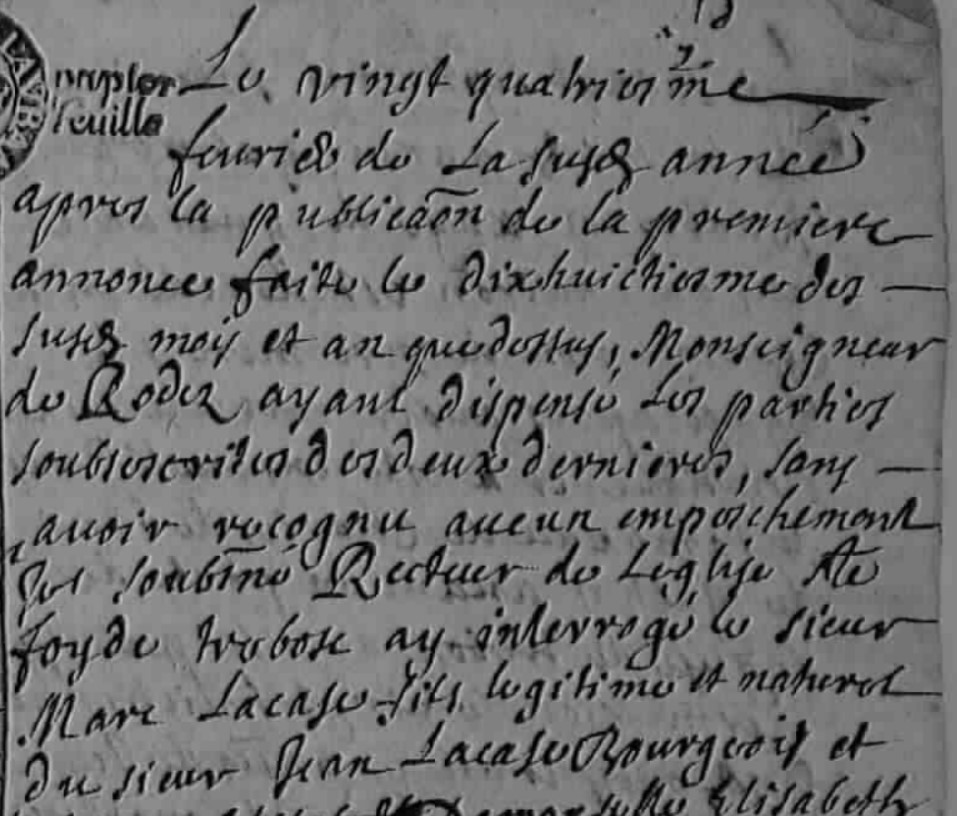 Le vingt quatriesme
feuvrier de La susd année
apres la publicaõn de la premiere
annonce faite le dixhuictiesme des
susd mois et an que dessus, Monseigneur
de Rodez ayant dispensé Les parties
soubsescrites des deux dernieres, sans
avoir recognu aucun empeschement
Je soubsne Recteur de Leglise Ste
foy de trebosc ay interrogé le sieur
Marc Lacase fils legitime et naturel
du sieur Jean Lacase Bourgeois et
Elisabeth